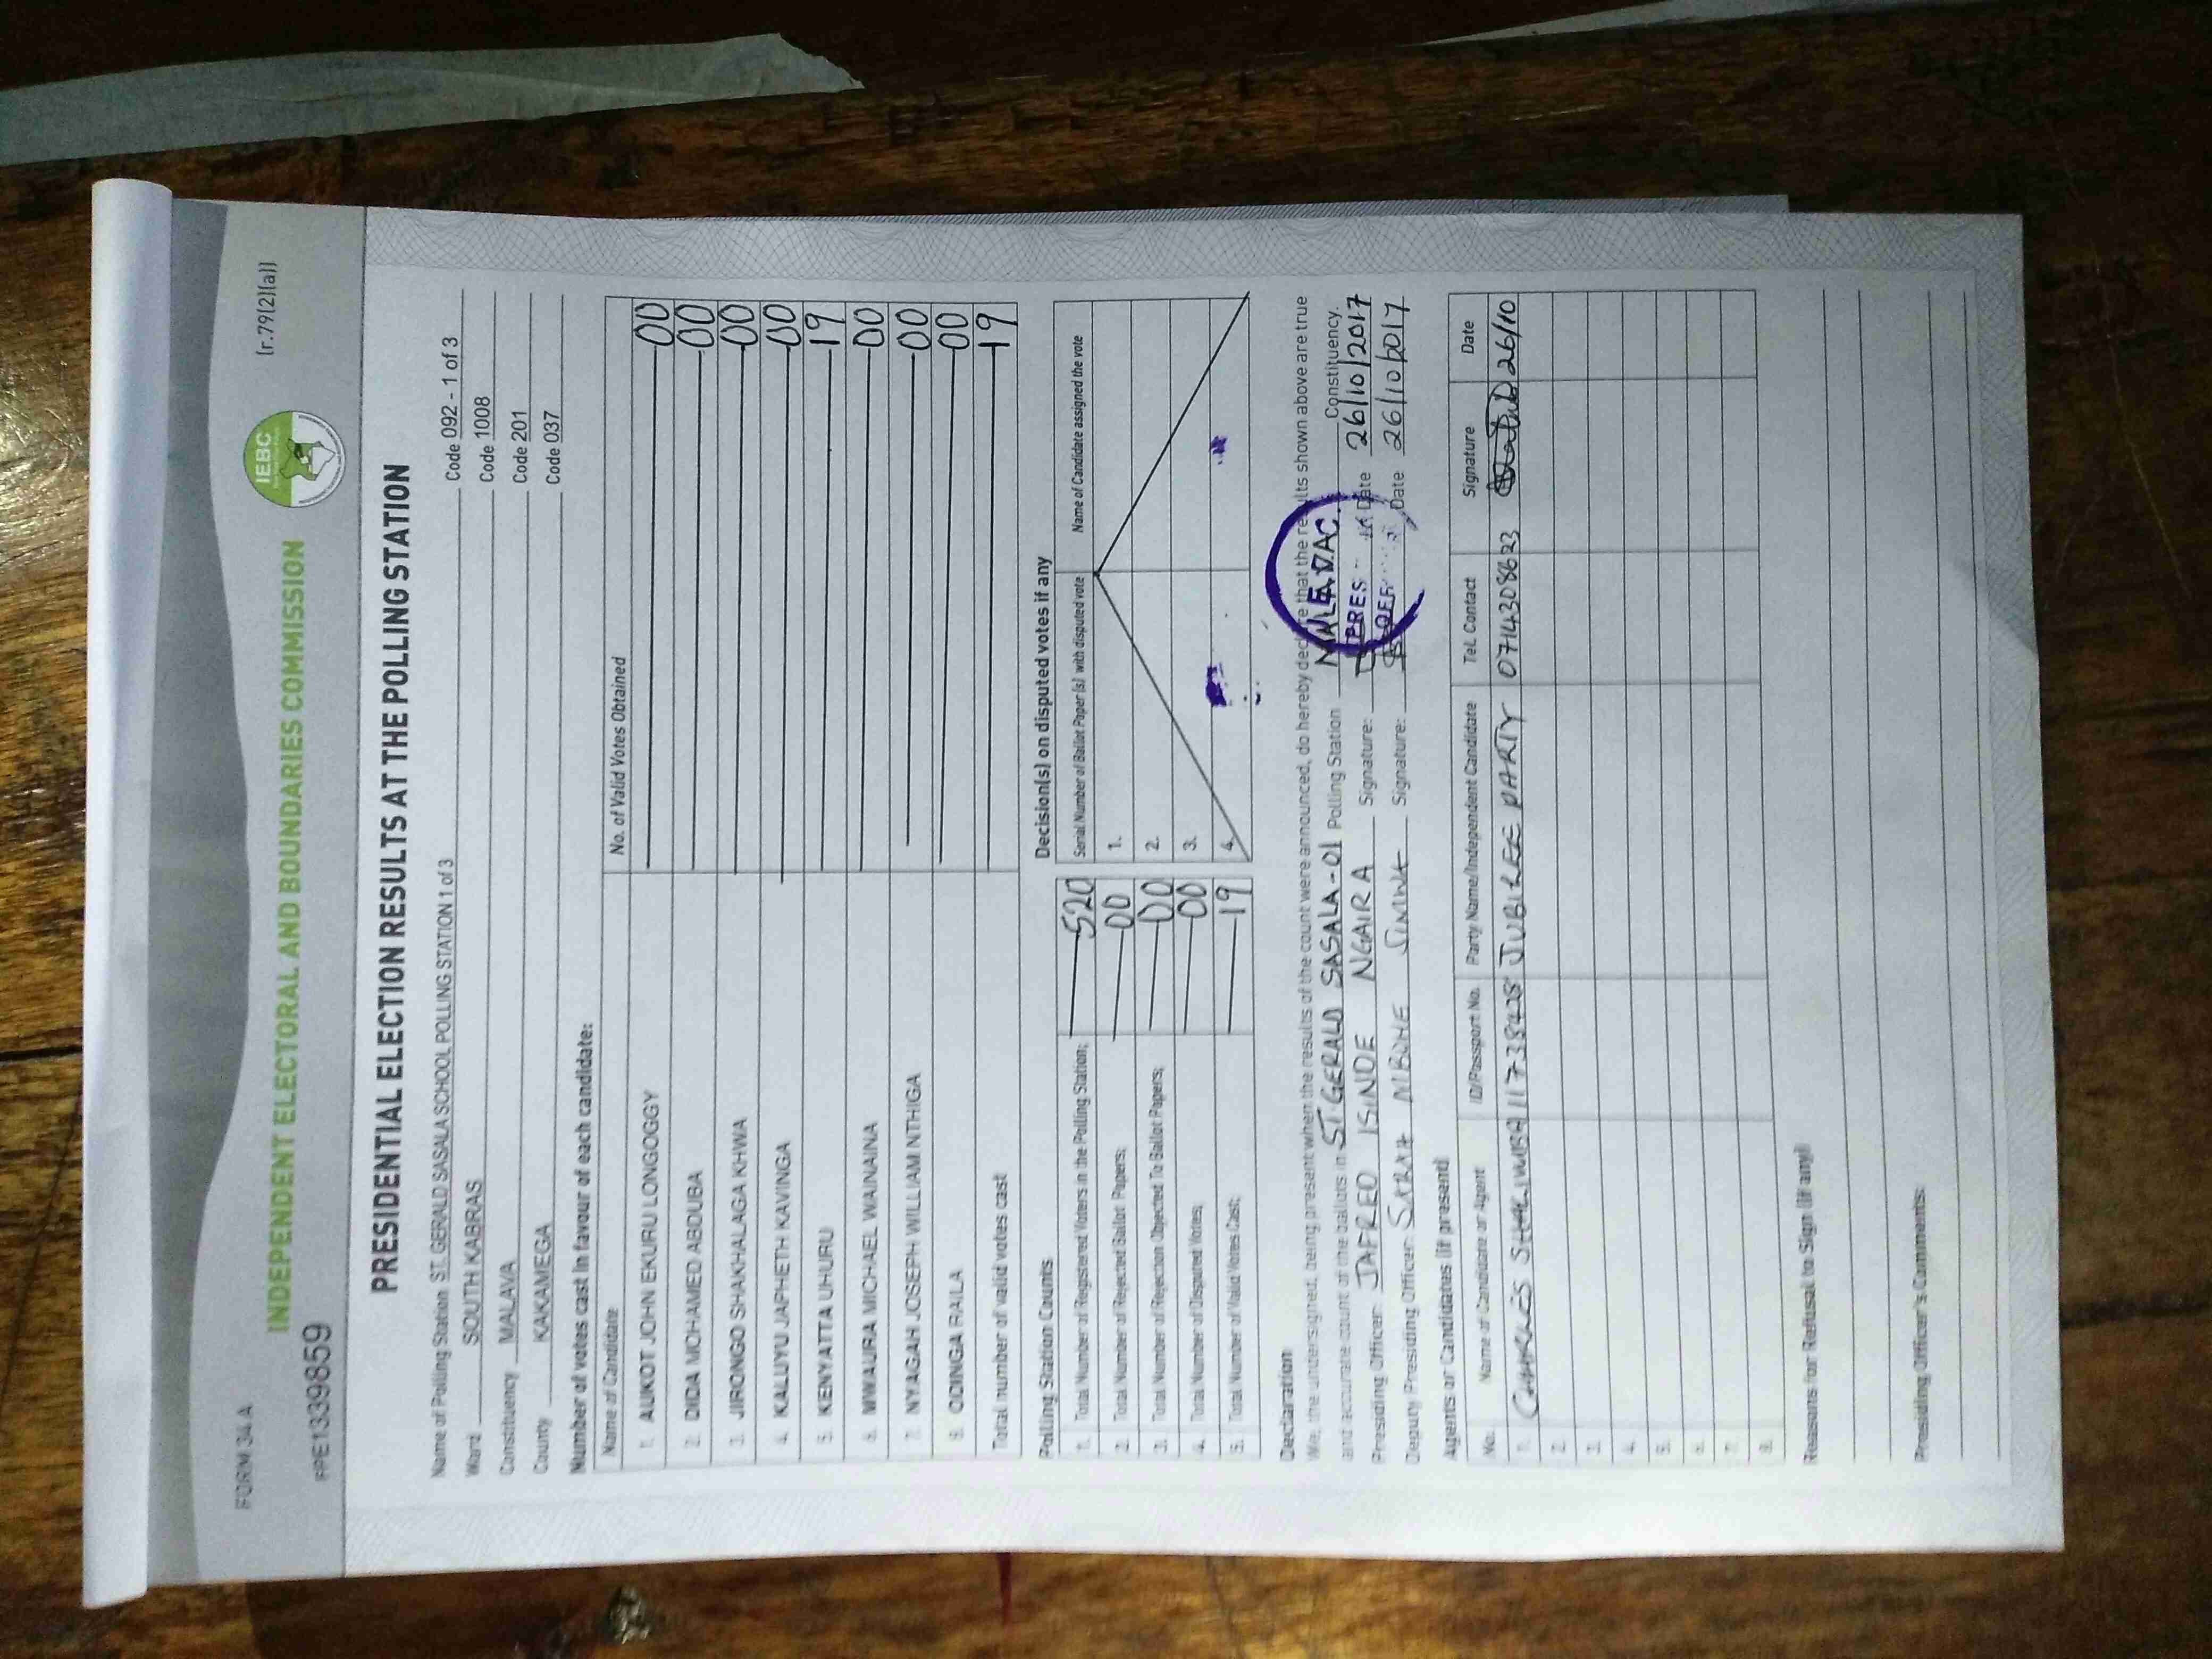 FORM 34 A
INDEPENDENT ELECTORAL AND BOUNDARIES COMMISSION
IEBC
(r.79(2)(a))
PPE1339859
PRESIDENTIAL ELECTION RESULTS AT THE POLLING STATION
Name of Polling Station ST. GERALD SASALA SCHOOL POLLING STATION 1 of 3 Code 092 - 1 of 3
Ward SOUTH KABRAS Code 1008
Constituency MALAVA Code 201
County KAKAMEGA Code 037
Number of votes cast in favour of each candidate:
Name of Candidate No. of Valid Votes Obtained
1. AUKOT JOHN EKURU LONGOGGY 00
2. DIDA MOHAMED ABDUBA 00
3. JIRONGO SHAKHALAGA KHWA 00
4. KALUYU JAPHETH KAVINGA 00
5. KENYATTA UHURU 19
6. MWAURA MICHAEL WAINAINA 00
7. NYAGAH JOSEPH WILLIAM NTHIGA 00
8. ODINGA RAILA 00
Total number of valid votes cast 19
Polling Station Counts
1. Total Number of Registered Voters in the Polling Station; 520
2. Total Number of Rejected Ballot Papers; 00
3. Total Number of Rejection Objected To Ballot Papers; 00
4. Total Number of Disputed Votes; 00
5. Total Number of Valid Votes Cast; 19
Decision(s) on disputed votes if any
Serial Number of Ballot Paper(s) with disputed vote Name of Candidate assigned the vote
1.
2.
3.
4.
Declaration
We, the undersigned, being present when the results of the count were announced, do hereby declare that the results shown above are true
and accurate count of the ballots in ST GERALD SASALA-01 Polling Station Constituency.
Presiding Officer: JAFRED ISINDE NGAIRA Signature: Date 26/10/2017
Deputy Presiding Officer: SARAH Signature: Date 26/10/2017
PRES
OFF
Agents or Candidates (if present)
No. Name of Candidate or Agent ID/Passport No. Party Name/Independent Candidate Tel. Contact Signature Date
1. CHARLES 11738408 JUBILEE PARTY 0714308623 26/10
2.
3.
4.
5.
6.
7.
8.
Reasons for Refusal to Sign (if any)
Presiding Officer's Comments: